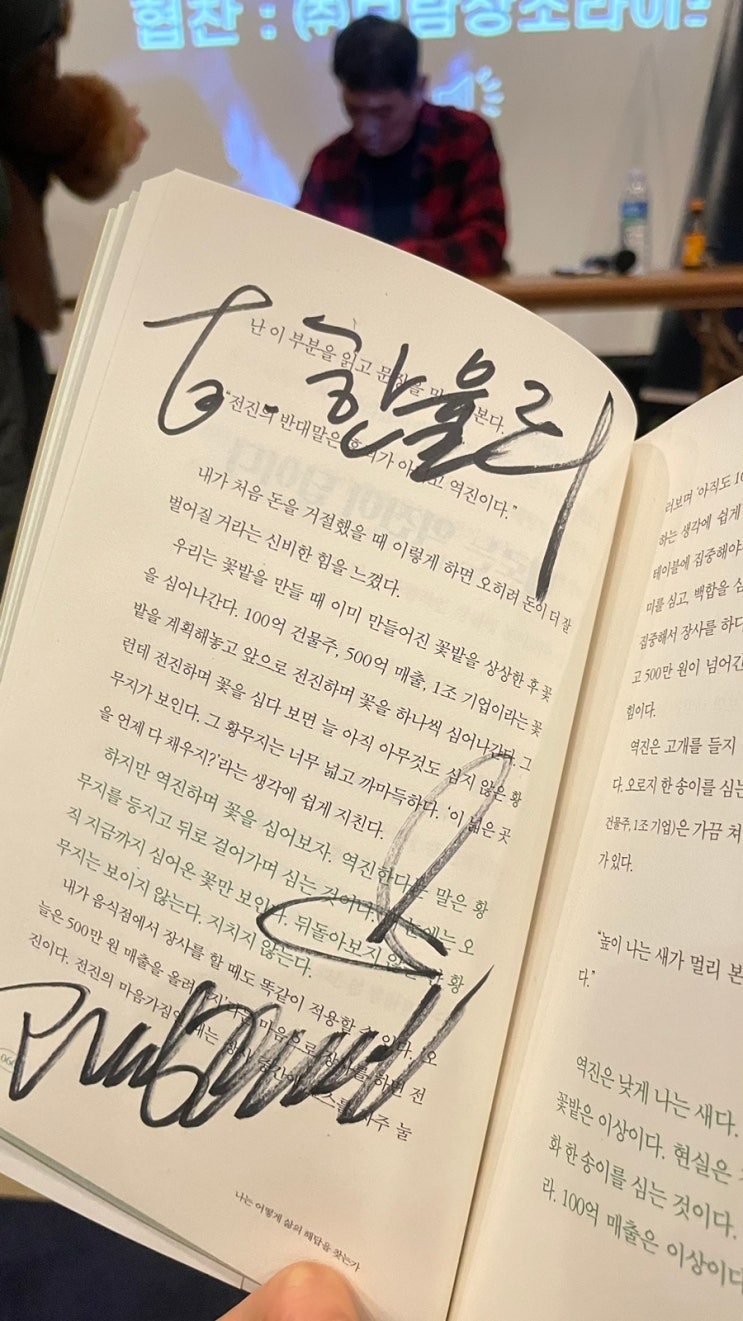 협찬 : ㈜보람상조라이프
To. 한울러
난 이 부분을 읽고 문장을 본다.
"전진의 반대말은 후퇴가 아니고 역진이다."
내가 처음 돈을 거절했을 때 이렇게 하면 오히려 돈이 더 잘
벌어질 거라는 신비한 힘을 느꼈다.
우리는 꽃밭을 만들 때 이미 만들어진 꽃밭을 상상한 후 꽃
을 심어나간다. 100억 건물주, 500억 매출, 1조 기업이라는 꽃
밭을 계획해놓고 앞으로 전진하며 꽃을 하나씩 심어나간다. 그
런데 전진하며 꽃을 심다 보면 늘 아직 아무것도 심지 않은 황
무지가 보인다. 그 황무지는 너무 넓고 까마득하다. '이 넓은 곳
을 언제 다 채우지?'라는 생각에 쉽게 지친다.
하지만 역진하며 꽃을 심어보자. 역진한다는 말은 황
무지를 등지고 뒤로 걸어가며 심는 것이다. 내 눈에는 오
직 지금까지 심어온 꽃만 보인다. 뒤돌아보지 않는 한 황
무지는 보이지 않는다. 지치지 않는다.
내가 음식점에서 장사를 할 때도 똑같이 적용할 수 있다. '오
늘은 500만 원 매출을 올려야지'라는 마음으로 장사를 하면 전
진이다. 전진의 마음가짐일 때는 장사 중간에 포스를 자주 눌
060
나는 어떻게 삶의 해답을 찾는가
러보며 '아직도 10
하는 생각에 쉽게
테이블에 집중해야
미를 심고, 백합을 심
집중해서 장사를 하다
고 500만 원이 넘어간
힘이다.
역진은 고개를 들지
다. 오로지 한 송이를 심는
건물주, 1조 기업)은 가끔 쳐
가 있다.
"높이 나는 새가 멀리 본
다."
역진은 낮게 나는 새다.
꽃밭은 이상이다. 현실은
화 한 송이를 심는 것이다.
라. 100억 매출은 이상이다